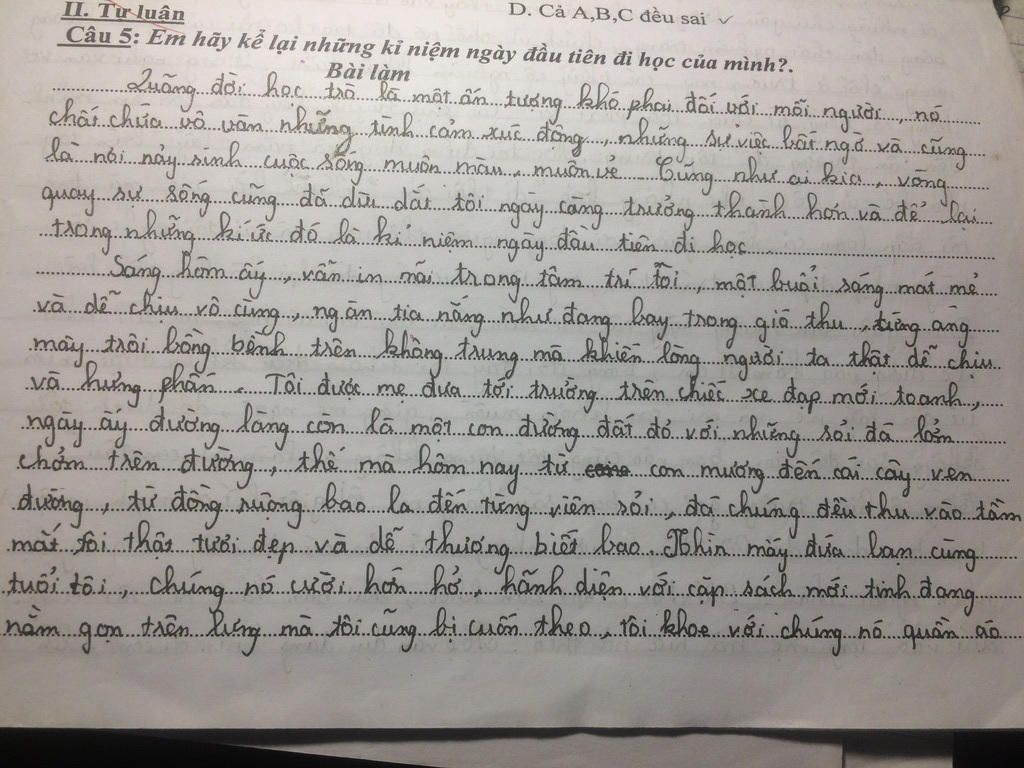 II. Tự luận
D. Cả A,B,C đều sai ✓
Câu 5: Em hãy kể lại những kỉ niệm ngày đầu tiên đi học của mình?.
Bài làm
Quãng đời học trò là một ấn tượng khó phai đối với mỗi người, nó
chất chứa vô vàn những tình cảm xúc động, những sự việc bất ngờ và cũng
là nơi nảy sinh cuộc sống muôn màu, muôn vẻ. Cũng như ai kia, vòng
quay sự sống cũng đã dìu dắt tôi ngày càng trưởng thành hơn và để lại
trong những kí ức đó là kỉ niệm ngày đầu tiên đi học.
Sáng hôm ấy, vẫn in mãi trong tâm trí tôi, một buổi sáng mát mẻ
và dễ chịu vô cùng, ngàn tia nắng như đang bay trong gió thu, từng áng
mây trôi bồng bềnh trên không trung mà khiến lòng người ta thật dễ chịu
và hưng phấn. Tôi được mẹ đưa tới trường trên chiếc xe đạp mới toanh,
ngày ấy đường làng còn là một con đường đất đỏ với những sỏi đá lởm
chởm trên đường, thế mà hôm nay từ con mương đến cái cây ven
đường, từ đồng ruộng bao la đến từng viên sỏi, đá chúng đều thu vào tầm
mắt tôi thật tươi đẹp và dễ thương biết bao. Nhìn mấy đứa bạn cùng
tuổi tôi, chúng nó cười hớn hở, hãnh diện với cặp sách mới tinh đang
nằm gọn trên lưng mà tôi cũng bị cuốn theo, tôi khoe với chúng nó quần áo